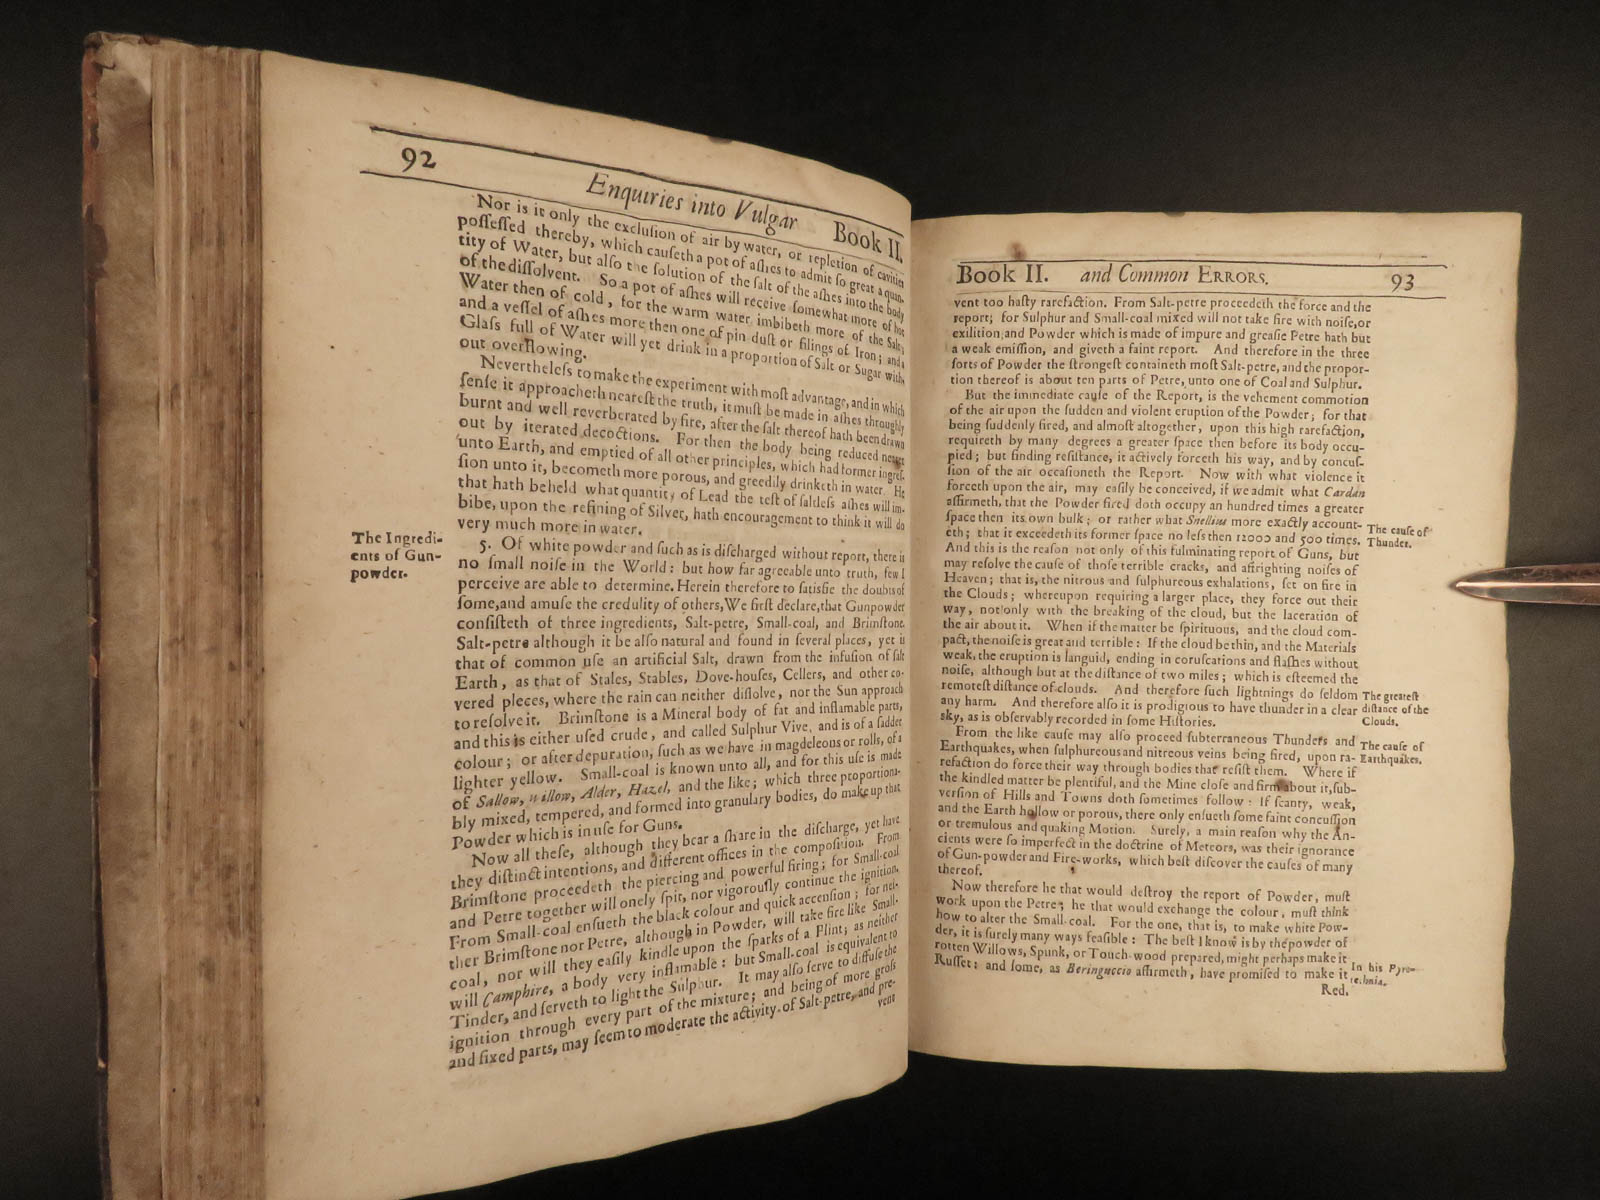 92
Enquiries into Vulgar Book II.
Nor is it only the excluſion of air by water, or repletion of cavities
poſſeſſed thereby, which cauſeth a pot of aſhes to admit ſo great a quan-
tity of Water, but alſo the ſolution of the ſalt of the aſhes into the body
of the diſſolvent. So a pot of aſhes will receive ſomewhat more of hot
Water then of cold, for the warm water imbibeth more of the Salt;
and a veſſel of aſhes more then one of pin duſt or filings of Iron; and a
Glaſs full of Water will yet drink in a proportion of Salt or Sugar with-
out overflowing.
Nevertheleſs to make the experiment with moſt advantage, and in which
ſenſe it approacheth neareſt the truth, it muſt be made in aſhes throughly
burnt and well reverberated by fire, after the ſalt thereof hath been drawn
out by iterated decoctions. For then the body being reduced nearer
unto Earth, and emptied of all other principles, which had former ingreſ-
ſion unto it, becometh more porous, and greedily drinketh in water. He
that hath beheld what quantity of Lead the teſt of ſaltleſs aſhes will im-
bibe, upon the refining of Silver, hath encouragement to think it will do
very much more in water.
The Ingredi-
ents of Gun-
powder.
5. Of white powder and ſuch as is diſcharged without report, there is
no ſmall noiſe in the World: but how far agreeable unto truth, few I
perceive are able to determine. Herein therefore to ſatisfie the doubts of
ſome, and amuſe the credulity of others, We firſt declare, that Gunpowder
conſiſteth of three ingredients, Salt-petre, Small-coal, and Brimſtone.
Salt-petre although it be alſo natural and found in ſeveral places, yet is
that of common uſe an artificial Salt, drawn from the infuſion of ſalt
Earth, as that of Stales, Stables, Dove-houſes, Cellers, and other co-
vered pleces, where the rain can neither diſſolve, nor the Sun approach
to reſolve it. Brimſtone is a Mineral body of fat and inflamable parts,
and this is either uſed crude, and called Sulphur Vive, and is of a ſadder
colour; or after depuration, ſuch as we have in magdeleons or rolls, of a
lighter yellow. Small-coal is known unto all, and for this uſe is made
of Sallow, Willow, Alder, Hazel, and the like; which three proportiona-
bly mixed, tempered, and formed into granulary bodies, do make up that
Powder which is in uſe for Guns.
Now all theſe, although they bear a ſhare in the diſcharge, yet have
they diſtinct intentions, and different offices in the compoſition. From
Brimſtone proceedeth the piercing and powerful firing; for Small-coal
and Petre together will onely ſpit, nor vigorouſly continue the ignition.
From Small-coal enſueth the black colour and quick accenſion; for nei-
ther Brimſtone nor Petre, although in Powder, will take fire like Small-
coal, nor will they eaſily kindle upon the ſparks of a Flint; as neither
will Camphire, a body very inflamable: but Small-coal is equivalent to
Tinder, and ſerveth to light the Sulphur. It may alſo ſerve to diffuſe the
ignition through every part of the mixture; and being of more groſs
and fixed parts, may ſeem to moderate the activity of Salt-petre, and pre-
vent
Book II. and Common ERRORS. 93
vent too haſty rarefaction. From Salt-petre proceedeth the force and the
report; for Sulphur and Small-coal mixed will not take fire with noiſe, or
exilition, and Powder which is made of impure and greaſie Petre hath but
a weak emiſſion, and giveth a faint report. And therefore in the three
ſorts of Powder the ſtrongeſt containeth moſt Salt-petre, and the propor-
tion thereof is about ten parts of Petre, unto one of Coal and Sulphur.
But the immediate cauſe of the Report, is the vehement commotion
of the air upon the ſudden and violent eruption of the Powder; for that
being ſuddenly fired, and almoſt altogether, upon this high rarefaction,
requireth by many degrees a greater ſpace then before its body occu-
pied; but finding reſiſtance, it actively forceth his way, and by concuſ-
ſion of the air occaſioneth the Report. Now with what violence it
forceth upon the air, may eaſily be conceived, if we admit what Cardan
affirmeth, that the Powder fired doth occupy an hundred times a greater
ſpace then its own bulk; or rather what Snellius more exactly account-
eth; that it exceedeth its former ſpace no leſs then 12000 and 500 times.
And this is the reaſon not only of this fulminating report of Guns, but
may reſolve the cauſe of thoſe terrible cracks, and affrighting noiſes of
Heaven; that is, the nitrous and ſulphureous exhalations, ſet on fire in
the Clouds; whereupon requiring a larger place, they force out their
way, not only with the breaking of the cloud, but the laceration of
the air about it. When if the matter be ſpirituous, and the cloud com-
pact, the noiſe is great and terrible: If the cloud be thin, and the Materials
weak, the eruption is languid, ending in coruſcations and flaſhes without
noiſe, although but at the diſtance of two miles; which is eſteemed the
remoteſt diſtance of clouds. And therefore ſuch lightnings do ſeldom
any harm. And therefore alſo it is prodigious to have thunder in a clear
sky, as is obſervably recorded in ſome Hiſtories.
The cauſe of
Thunder.
The greateſt
diſtance of the
Clouds.
From the like cauſe may alſo proceed ſubterraneous Thunders and
Earthquakes, when ſulphureous and nitreous veins being fired, upon ra-
refaction do force their way through bodies that reſiſt them. Where if
the kindled matter be plentiful, and the Mine cloſe and firm about it, ſub-
verſion of Hills and Towns doth ſometimes follow: If ſcanty, weak,
and the Earth hollow or porous, there only enſueth ſome faint concuſſion
or tremulous and quaking Motion. Surely, a main reaſon why the An-
cients were ſo imperfect in the doctrine of Meteors, was their ignorance
of Gun-powder and Fire-works, which beſt diſcover the cauſes of many
thereof.
The cauſe of
Earthquakes.
Now therefore he that would deſtroy the report of Powder, muſt
work upon the Petre; he that would exchange the colour, muſt think
how to alter the Small-coal. For the one, that is, to make white Pow-
der, it is ſurely many ways feaſible: The beſt I know is by the powder of
rotten Willows, Spunk, or Touch-wood prepared, might perhaps make it
Ruſſet: and ſome, as Beringuccio affirmeth, have promiſed to make it
Red.
In his Pyro-
technia.